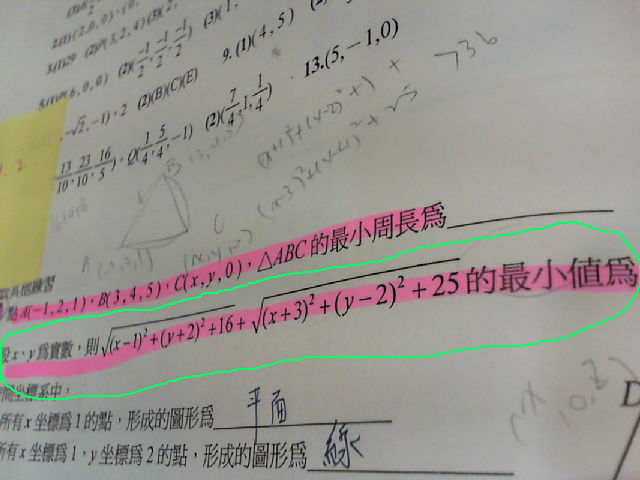 2.(1)(2,0,0),(0,
3.(1)29 (2)P(3,2,4)(3)(2,
5.(1)P(6,0,0) (2)(-1/2,-1/2,-1/2) (3)(1,
-√2,-1),2 (2)(B)(C)(E) 9.(1)(4,5) (2)
13/10,23/10,16/5),Q(1/4,5/4,-1) (2)(7/4,1,1/4) 13.(5,-1,0)
736
B
C
A (-1,2,1) (x,y,0)
其他練習
點A(-1,2,1),B(3,4,5),C(x,y,0),△ABC的最小周長為
設x,y為實數,則√((x-1)²+(y+2)²+16)+√((x+3)²+(y-2)²+25)的最小值為
間坐標系中,
所有x坐標為1的點,形成的圖形為 平面
所有x坐標為1,y坐標為2的點,形成的圖形為 線
D